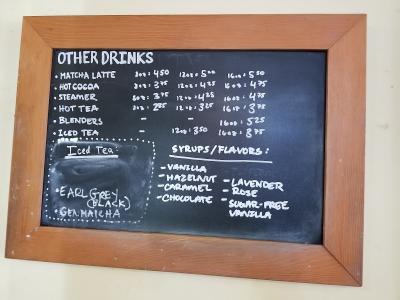 OTHER DRINKS
• MATCHA LATTE 8oz: 4.50 12oz: 5.00 16oz: 5.50
• HOT COCOA 8oz: 3.75 12oz: 4.25 16oz: 4.75
• STEAMER 8oz: 3.75 12oz: 4.25 16oz: 4.75
• HOT TEA 8oz: 12oz: 3.25 16oz: 3.75
• BLENDERS - - 16oz: 5.25
• ICED TEA - 12oz: 3.50 16oz: 3.75
Iced Tea
• EARL GREY
(BLACK)
• GENMAICHA
SYRUPS/FLAVORS:
- VANILLA
- HAZELNUT
- CARAMEL
- CHOCOLATE
- LAVENDER
- ROSE
- SUGAR-FREE
VANILLA